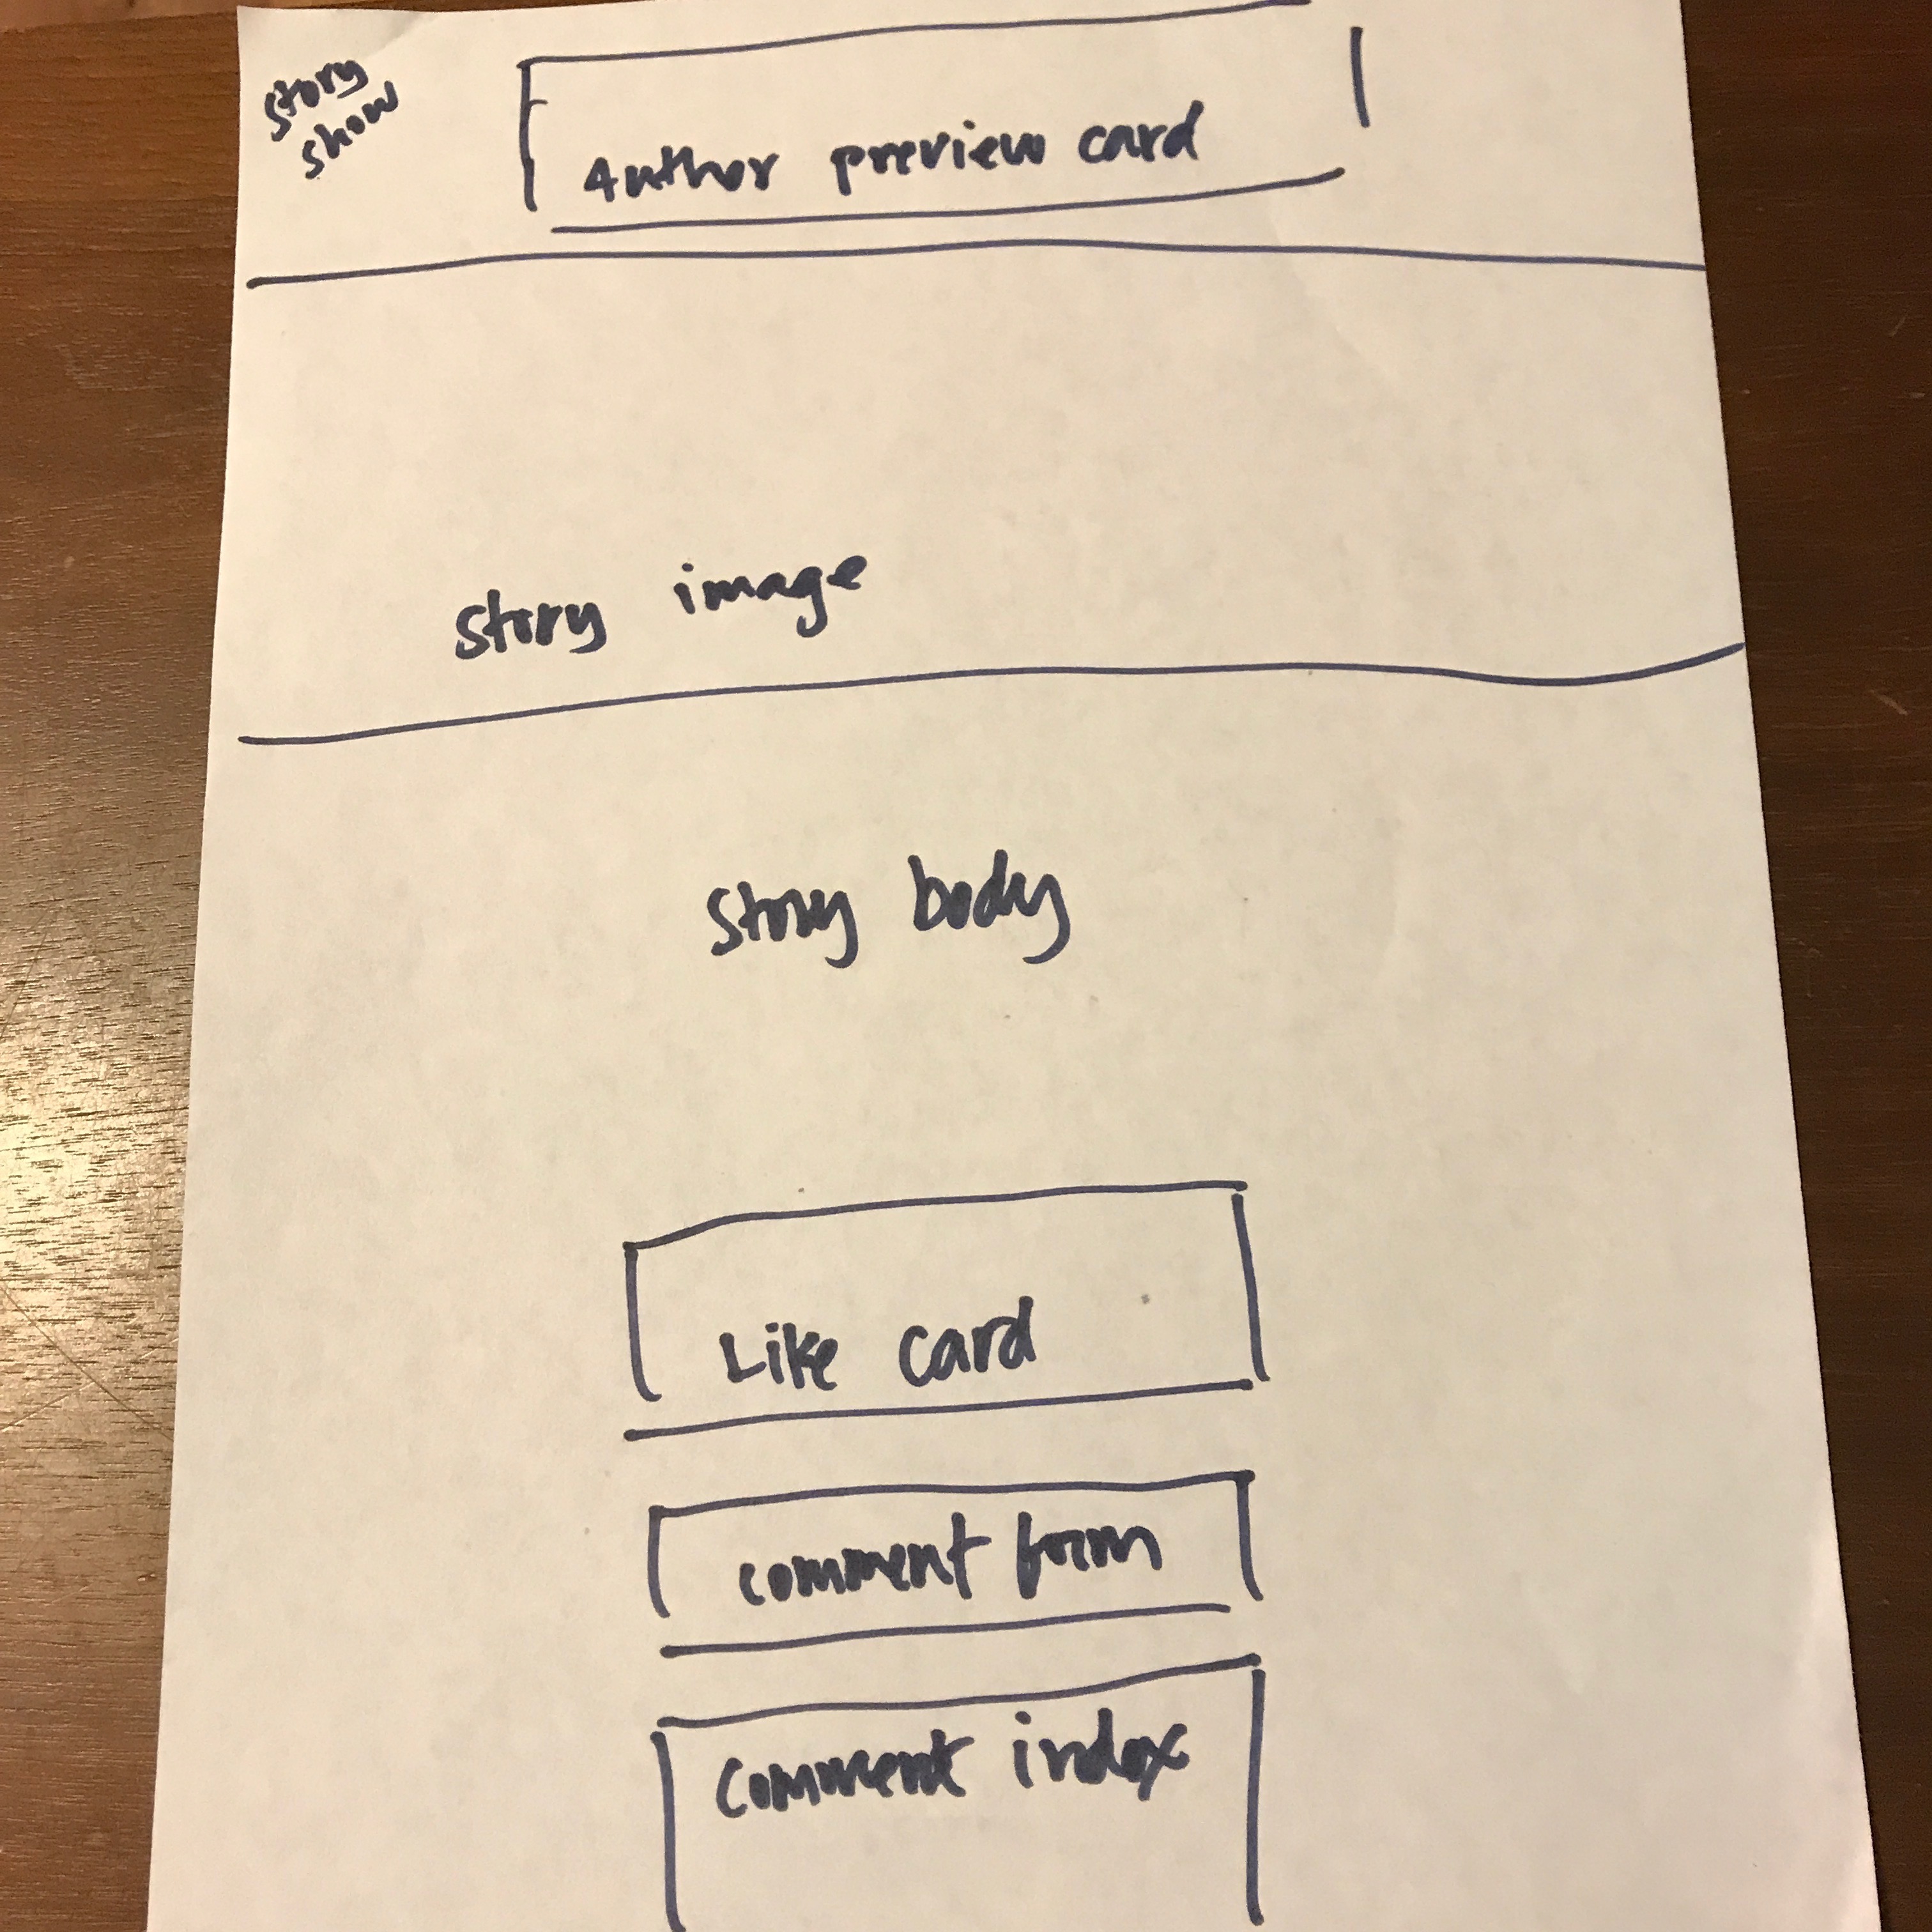 story
show
Author preview card
story image
story body
Like card
comment form
comment index